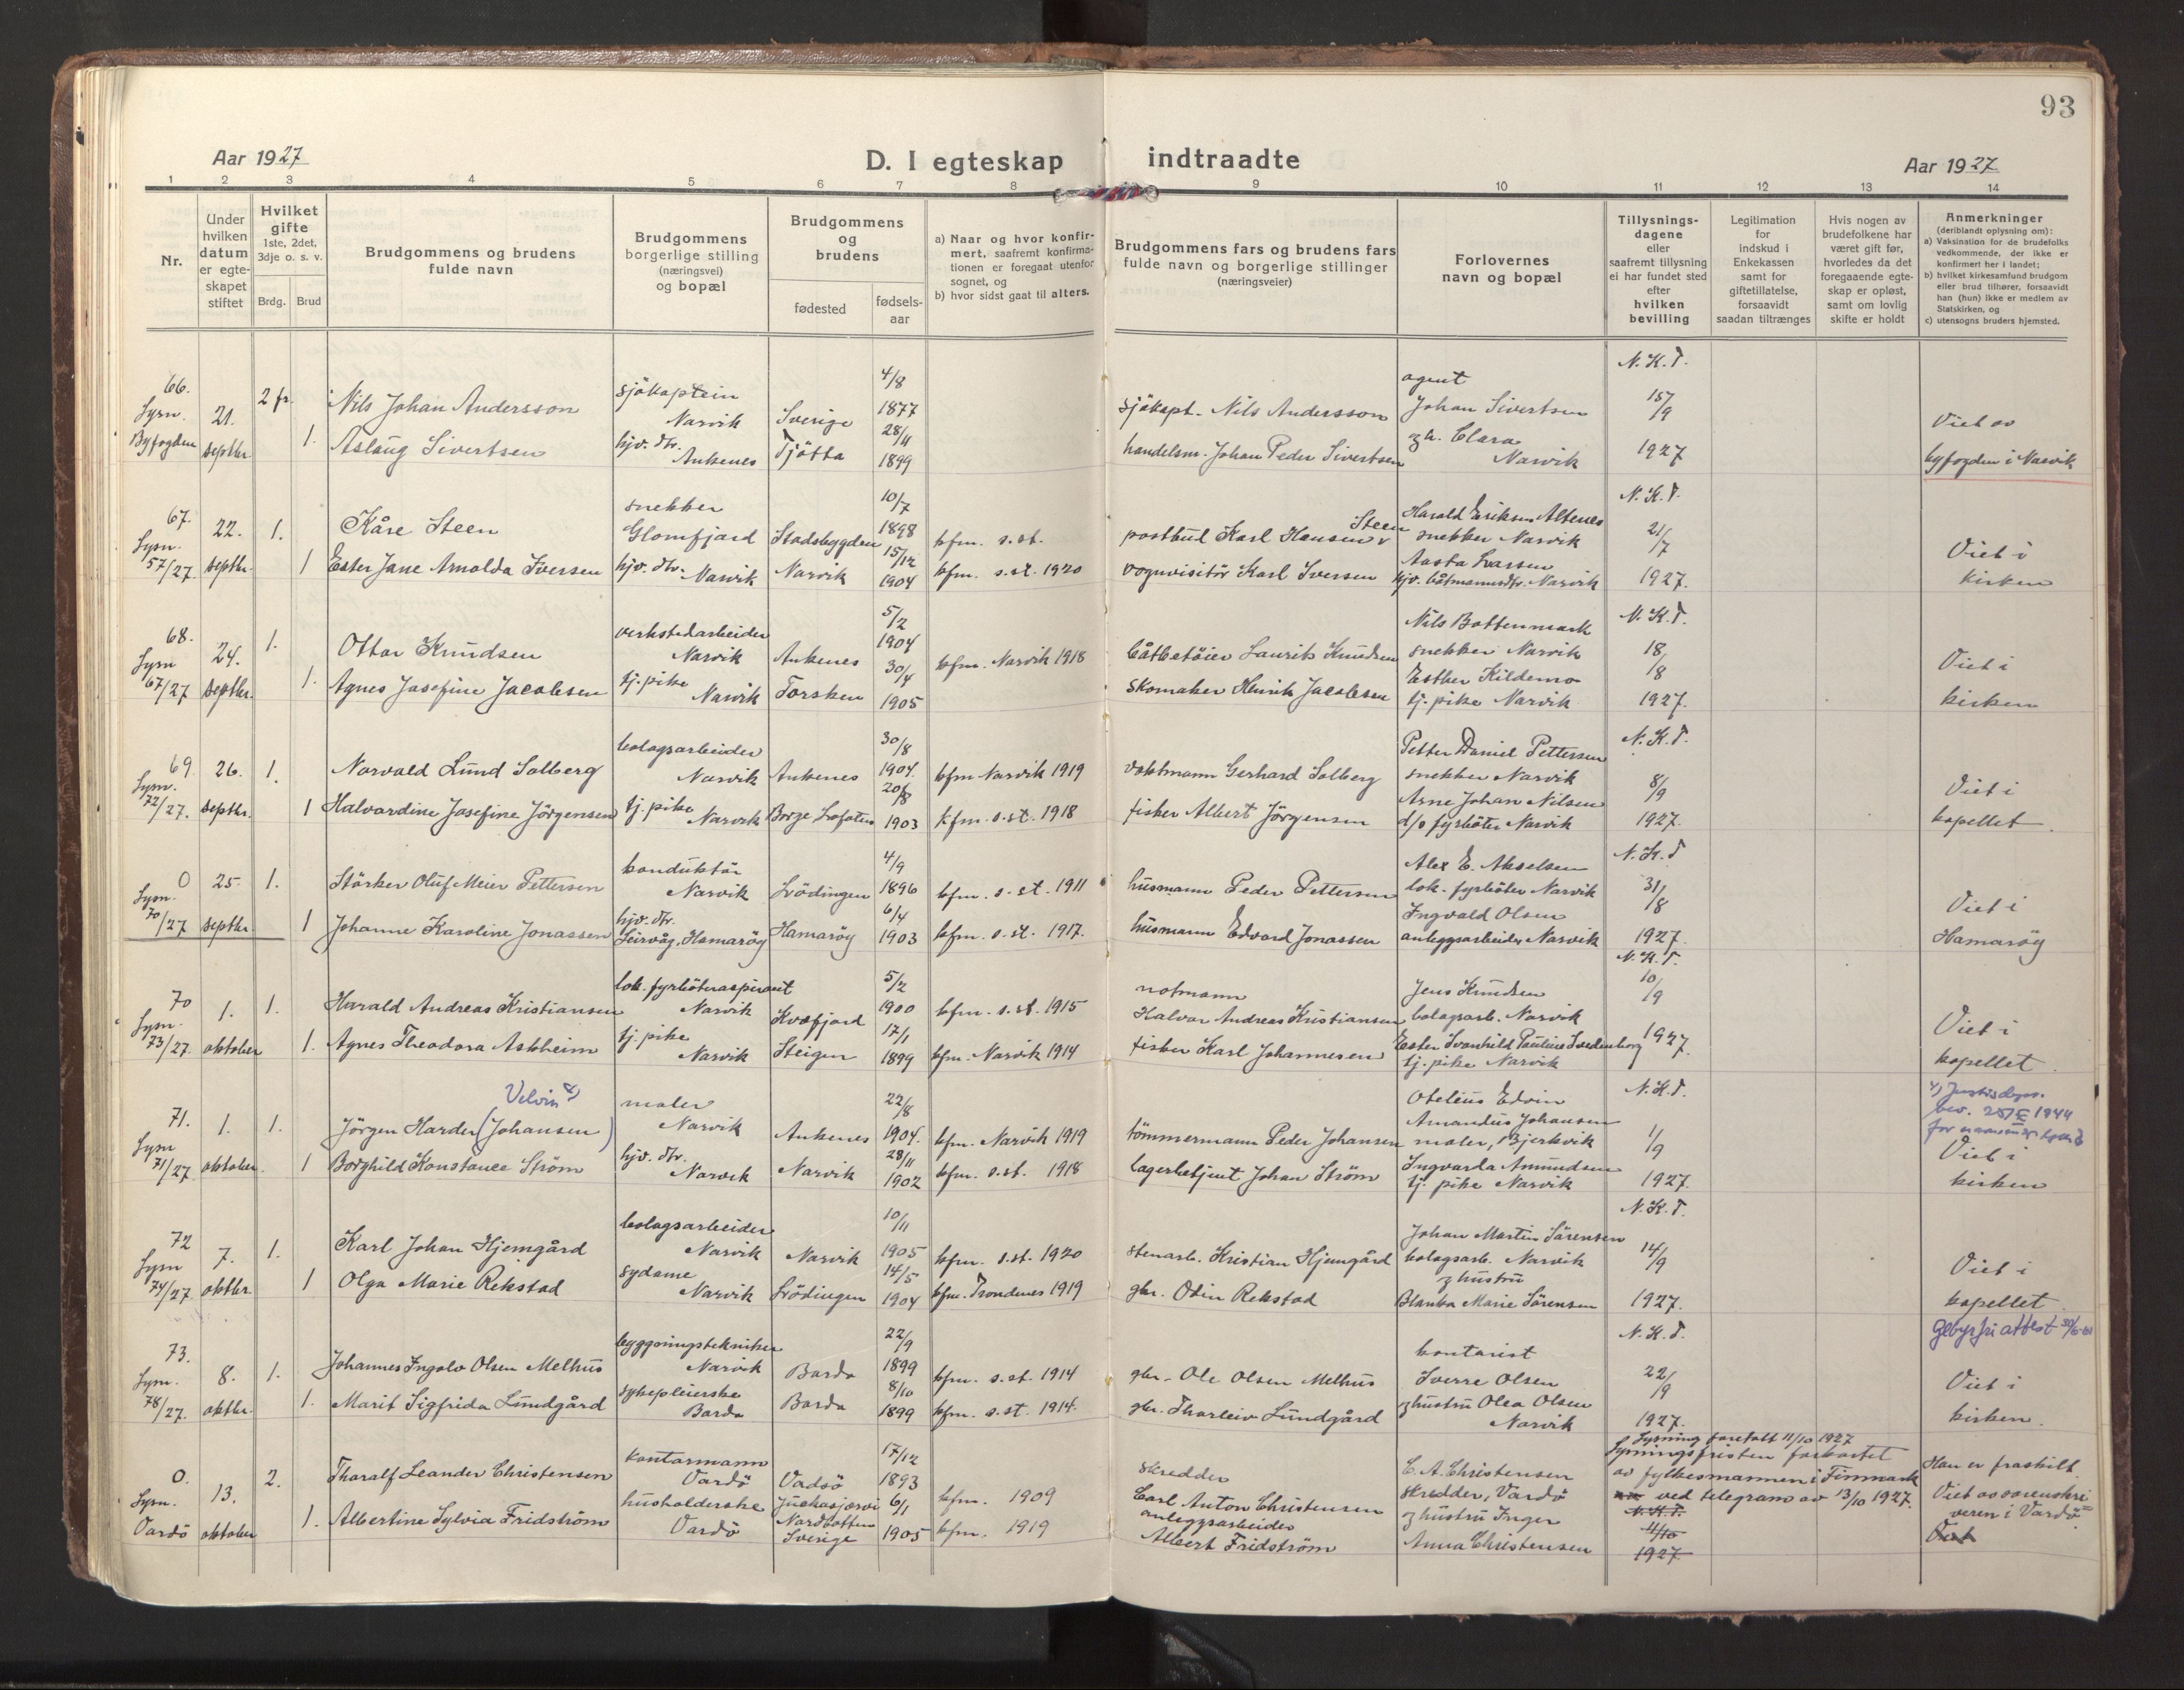 93
Aar 1927
D. I egteskap indtraadte
Aar 1927
1 2 3 4 5 6 7 8 9 10 11 12 13 14
Nr.
Under hvilken datum er egteskapet stiftet
Hvilket gifte 1ste, 2det, 3dje o. s. v.
Brdg. Brud
Brudgommens og brudens fulde navn
Brudgommens borgerlige stilling (næringsvei) og bopæl
Brudgommens og brudens
fødested
fødsels-aar
a) Naar og hvor konfirmert, saafremt konfirmationen er foregaat utenfor sognet, og
b) hvor sidst gaat til alters.
Brudgommens fars og brudens fars fulde navn og borgerlige stillinger (næringsveier)
Forlovernes navn og bopæl
Tillysningsdagene eller saafremt tillysning ei har fundet sted efter hvilken bevilling
Legitimation for indskud i Enkekassen samt for giftetillatelse, forsaavidt saadan tiltrænges
Hvis nogen av brudefolkene har været gift før, hvorledes da det foregaaende egteskap er opløst, samt om lovlig skifte er holdt
Anmerkninger (deriblandt oplysning om):
a) Vaksination for de brudefolks vedkommende, der ikke er konfirmert her i landet;
b) hvilket kirkesamfund brudgom eller brud tilhører, forsaavidt han (hun) ikke er medlem av Statskirken, og
c) utensogns bruders hjemsted.
66. Lysn. Byfogden 21. septbr. 2 fr.
Nils Johan Andersson sjökaptein Narvik Sverige 4/8 1877 sjökapt. Nils Andersson
1. Aslaug Sivertsen hjv. dtr. Ankenes Tjötta 28/11 1899 handelsm. Johan Peder Sivertsen
agent Johan Sivertsen og h. Clara Narvik
N. K. T. 15/9 1927
Viet av byfogden i Narvik
67. Lysn. 57/27. 22. septbr. 1.
Kåre Steen snekker Glomfjord Stadsbygden 10/7 1898 kfm. s. st. postbud Karl Hansen Steen
1 Ester Jane Arnolda Iversen hjv. dtr. Narvik Narvik 15/12 1904 kfm. s. st. 1920 vognvisitör Karl Iversen
Harald Eriksen Altenes snekker Narvik
Aasta Larssen hjv. båtmannsdtr. Narvik
N. K. T. 21/7 1927.
Viet i kirken
68. Lysn 67/27 24. septbr. 1.
Ottar Knudsen verkstedarbeider Narvik Ankenes 5/2 1904 kfm. Narvik 1918 båtbetöier Laurits Knudsen
1. Agnes Josefine Jacobsen tj. pike Narvik Torsken 30/4 1905 skomaker Henrik Jacobsen
Nils Bottenmark snekker Narvik
Esther Kildemo tj. pike Narvik
N. K. T. 18/8 1927.
Viet i kirken
69 Lysn. 72/27. 26. septbr. 1.
Norvald Lund Solberg bolagsarbeider Narvik Ankenes 30/8 1904. kfm Narvik 1919 vaktmann Gerhard Solberg
1 Halvardine Josefine Jörgensen tj. pike Narvik Borge Lofoten 20/8 1903 kfm. s. st. 1918 fisker Albert Jörgensen
Petter Daniel Pettersen snekker Narvik
Arne Johan Nilsen d/s fyrböter Narvik
N. K. T. 8/9 1927.
Viet i kapellet.
0 Lysn. 70/27 25. septbr. 1.
Störker Oluf Meier Pettersen konduktör Narvik Lödingen 4/9 1896 kfm. s. st. 1911 husmann Peder Pettersen
1 Johanne Karoline Jonassen hjv. dtr. Leirvåg, Hamaröy Hamaröy 6/4 1903 kfm. s. st. 1917. husmann Edvard Jonassen
Alex E. Akselsen lok. fyrböter Narvik
Ingvald Olsen anleggsarbeider Narvik
N. K. T 31/8 1927.
Viet i Hamaröy
70 Lysn. 73/27. 1. oktober 1.
Harald Andreas Kristiansen lok. fyrböteraspirant Narvik Kvæfjord 5/2 1900 kfm. s. st. 1915 notmann Halvor Andreas Kristiansen
1. Agnes Theodora Askheim tj. pike Narvik Steigen 17/1 1899 kfm. Narvik 1914 fisker Karl Johannesen
Jens Knudsen bolagsarb. Narvik
Ester Svanhild Pauline Svedenborg tj. pike Narvik
N. K. T. 10/9 1927.
Viet i kapellet.
71. Lysn 71/27 1. oktober. 1.
Velvin x)
Jörgen Harder (Johansen) maler Narvik Ankenes 22/8 1904. kfm. Narvik 1919 tömmermann Peder Johansen
1 Borghild Konstance Ström hjv. dtr. Narvik Narvik 28/11 1902 kfm. s. st. 1918 lagerbetjent Johan Ström
Oteleus Edvin Amandus Johansen maler, Bjerkvik
Ingvarda Amundsen tj. pike Narvik
N. K. T. 1/9 1927.
x) Justisdepr. bev. 1944 for
Viet i kirken
72 Lysn 74/27 7. oktbr. 1.
Karl Johan Hjemgård bolagsarbeider Narvik Narvik 10/11 1905 kfm. s. st. 1920 stenarb. Kristian Hjemgård
1 Olga Marie Rekstad sydame Narvik Lödingen 14/5 1904 kfm. Trondenes 1919 gbr. Odin Rekstad
Johan Martin Sörensen bolagsarb. Narvik
og hustru Blanka Marie Sörensen
N. K. T. 14/9 1927.
Viet i kapellet.
73. Lysn. 78/27. 8. oktbr. 1.
Johannes Ingolv Olsen Melhus byggningstekniker Narvik Bardo 22/9 1899 kfm. s. st. 1914 gbr. Ole Olsen Melhus
1. Marit Sigfrida Lundgård sykepleierske Bardo Bardo 8/10 1899 kfm. s. st. 1914. gbr. Tharleiv Lundgård
kontorist Sverre Olsen og hustru Olea Olsen Narvik
N. K. T. 22/9 1927.
Gebyrfri attest
Viet i kirken.
0. Lysn. Vardö 13. oktober 2.
Tharalf Leander Christensen kontormann Vardö Vadsö 17/12 1893 kfm. 1909 skredder Carl Anton Christensen
1. Albertine Sylvia Fridström husholderske Vardö Juckasjærvi Nordbotten Sverige 6/1 1905 kfm. 1919 anleggsarbeider Albert Fridström
C. A. Christensen skredder, Vardö og hustru Inger Anna Christensen
Lysning foretatt 11/10 1927
Lysningsfristen forkortet av fylkesmannen i Finmark ved telegram av 13/10 1927.
N. K. T. 11/10 1927
Han er fraskilt.
Viet av sorenskriveren i Vardö
Viet